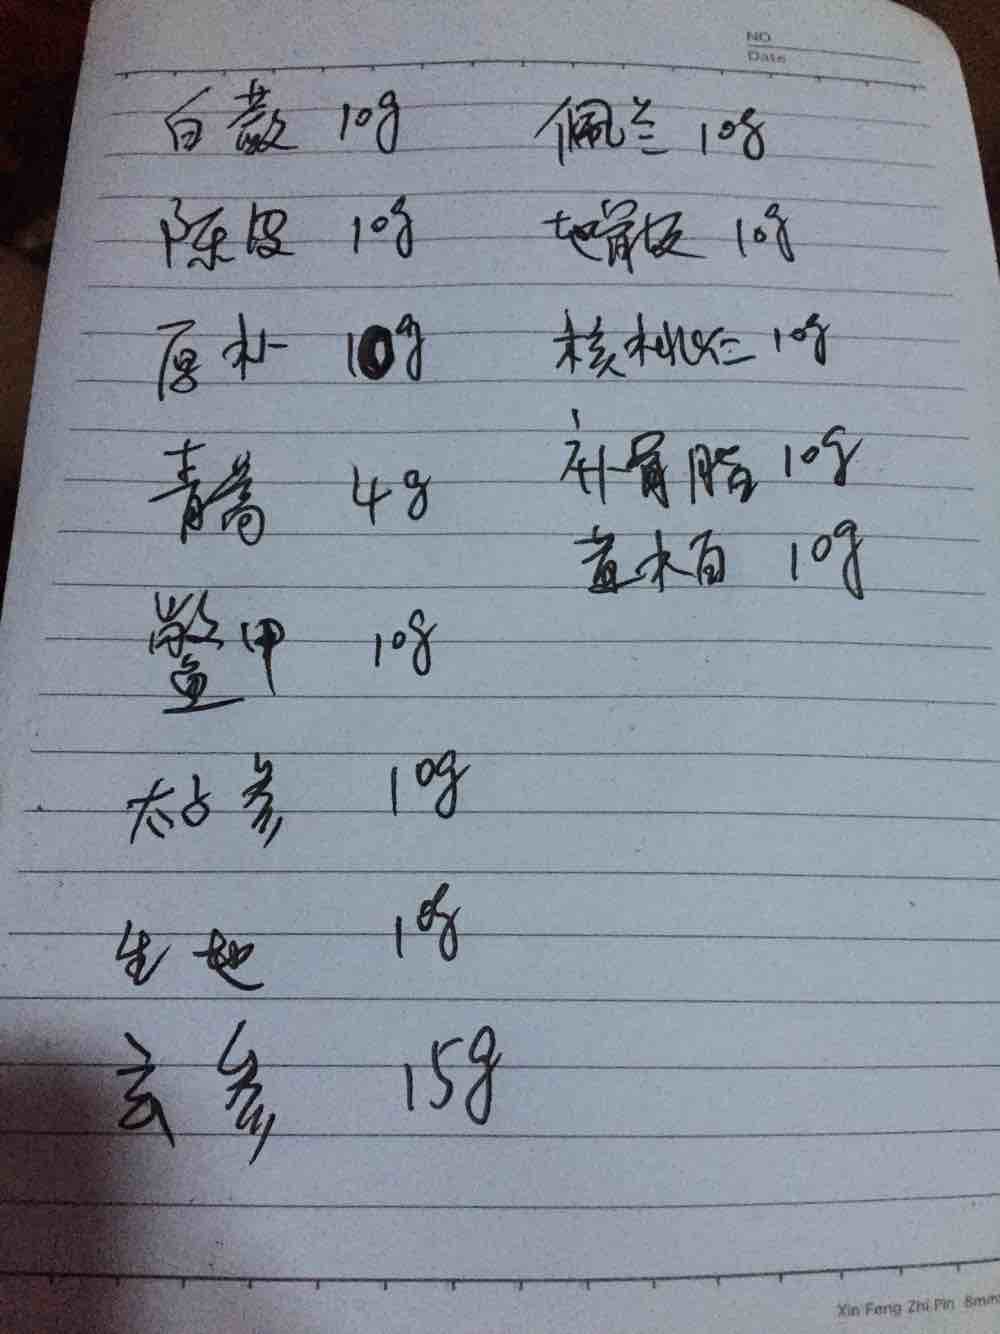 NO
Date
白蔹 10g
陈皮 10g
厚朴 10g
青蒿 4g
鳖甲 10g
太子参 10g
生地 10g
玄参 15g
佩兰 10g
地骨皮 10g
核桃仁 10g
补骨脂 10g
黄柏 10g
Xin Feng Zhi Pin 8mm